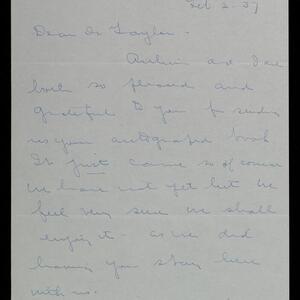 Feb 2. 37
Dear Dr Taylor -
and I are
both so pleased and
grateful to you for sending
us your autographed book
It just came so of course
we have not yet but we
feel very sure we shall
enjoy it - as we did
having you stay here
with us.